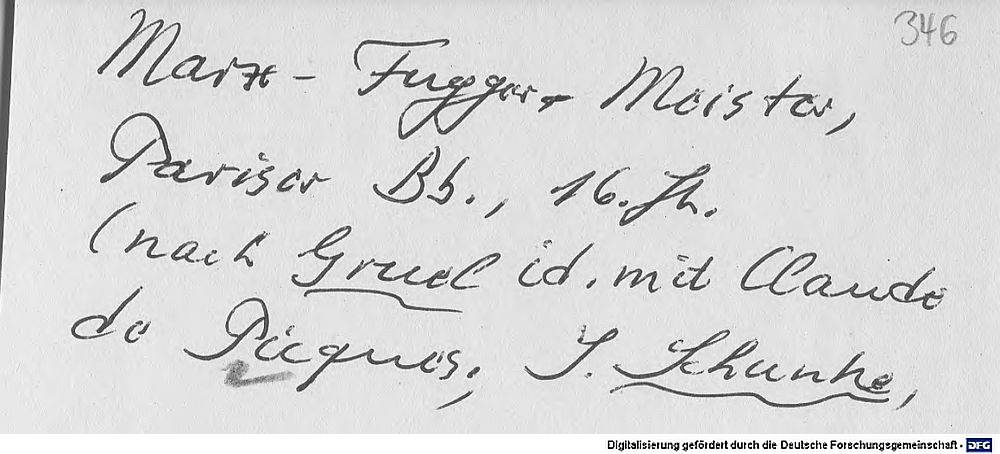 346
Marx-Fugger-Meister,
Pariser Bb., 16. Jh.
(nach Gruel id. mit Claude
de Picques, I. Schunke,
Digitalisierung gefördert durch die Deutsche Forschungsgemeinschaft - DFG